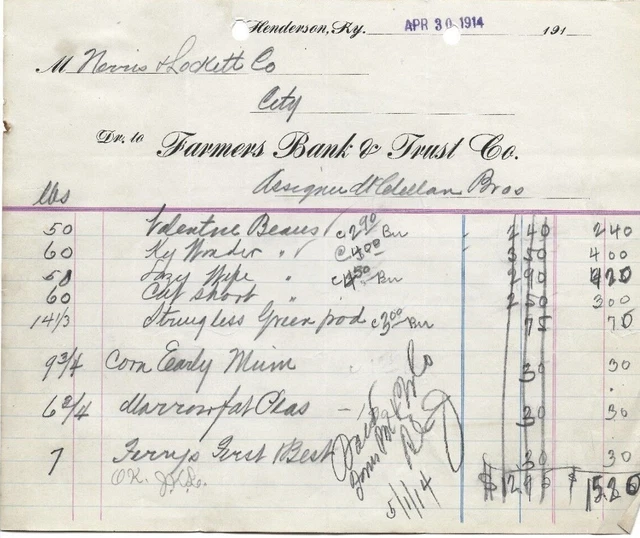 Henderson, Ky. APR 30 1914 191
M Nevins & Lockett Co
City
Dr. to Farmers Bank & Trust Co.
Assignee McClellan Bros
lbs
50 Valentine Beans @ 2 90 Bu 2 40 2 40
60 Ky Wonder " @ 4 00 3 50 4 00
50 Lazy Wife " @ 4 50 Bu 2 90
60 Cut Short " 2 50 3 00
14 1/3 Stringless Green pod @ 3 00 Bu 75 75
9 3/4 Corn Early Mum 30 30
6 2/4 Marrowfat Peas 30 30
7 Ferry's First & Best 30 30
OK.
$ 12 95 $ 15 20
Paid
5/1/14